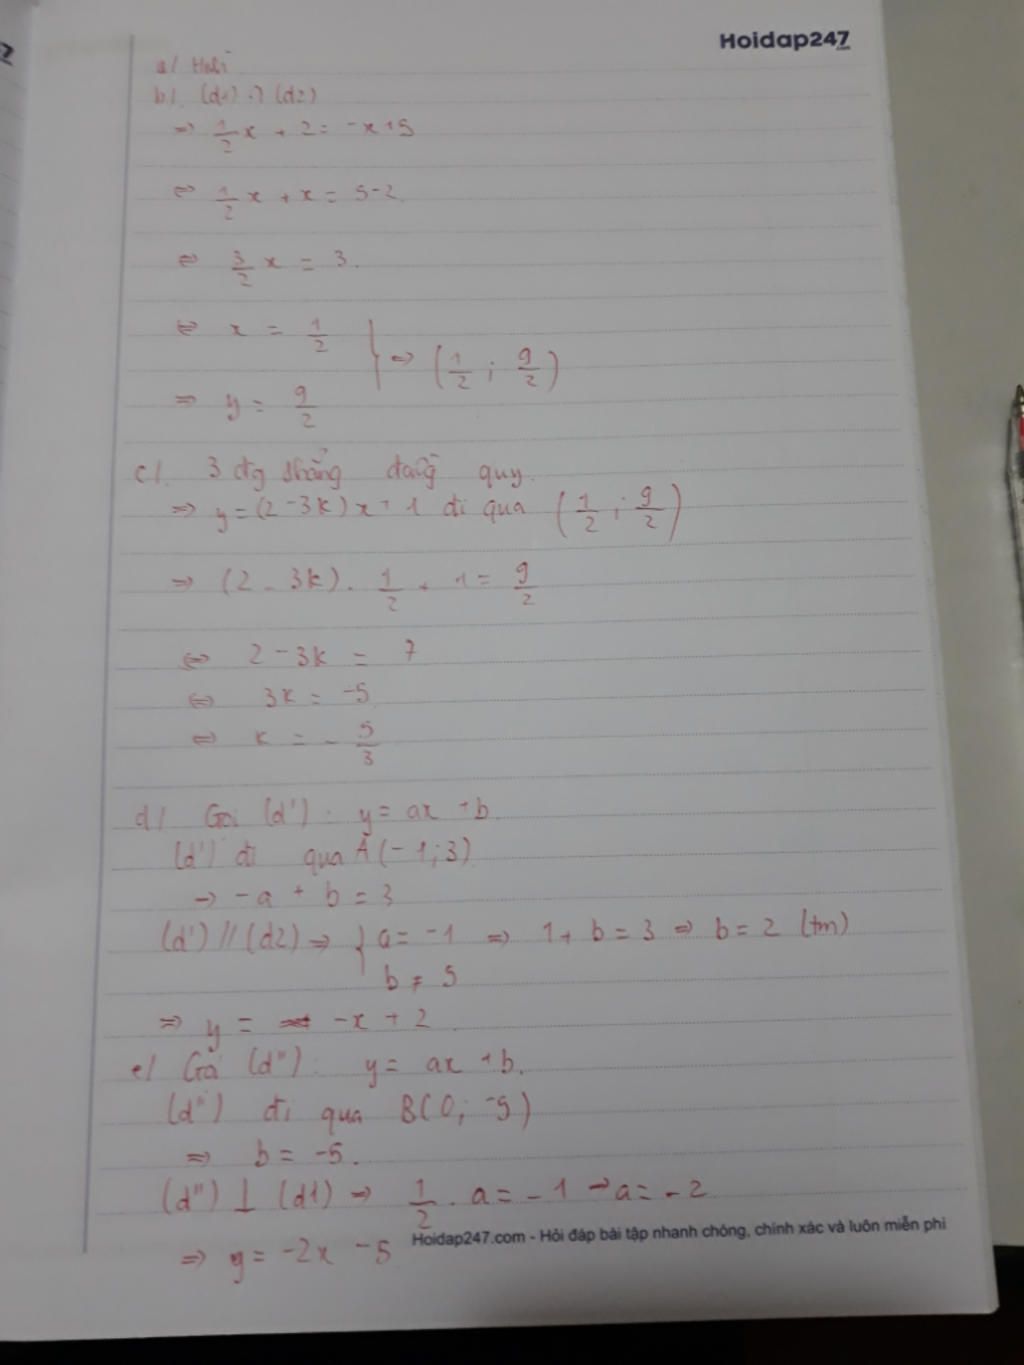 Hoidap247
.com
b/. (d1) ∩ (d2)
=> 1/2 x + 2 = -x+5
<=> 1/2 x + x = 5-2.
<=> 3/2 x = 3.
<=> x = 1/2
=> (1/2 ; 9/2)
=> y = 9/2
c/. 3 đg thẳng đồng quy.
=> y = (2-3k)x+1 đi qua (1/2 ; 9/2)
=> (2-3k). 1/2 + 1 = 9/2
<=> 2-3k = 7
<=> 3k = -5
<=> k = - 5/3
d/ Gọi (d'): y = ax + b
(d') đi qua A(-1;3)
-> -a + b = 3
(d') // (d2) => { a = -1 => 1 + b = 3 => b = 2 (tm)
b ≠ 5
=> y = -x + 2
e/ Gọi (d''): y = ax + b.
(d'') đi qua B(0; -5)
=> b = -5.
(d'') ⊥ (d1) => 1/2 . a = -1 -> a = -2
Hoidap247.com - Hỏi đáp bài tập nhanh chóng, chính xác và luôn miễn phí
=> y = -2x - 5